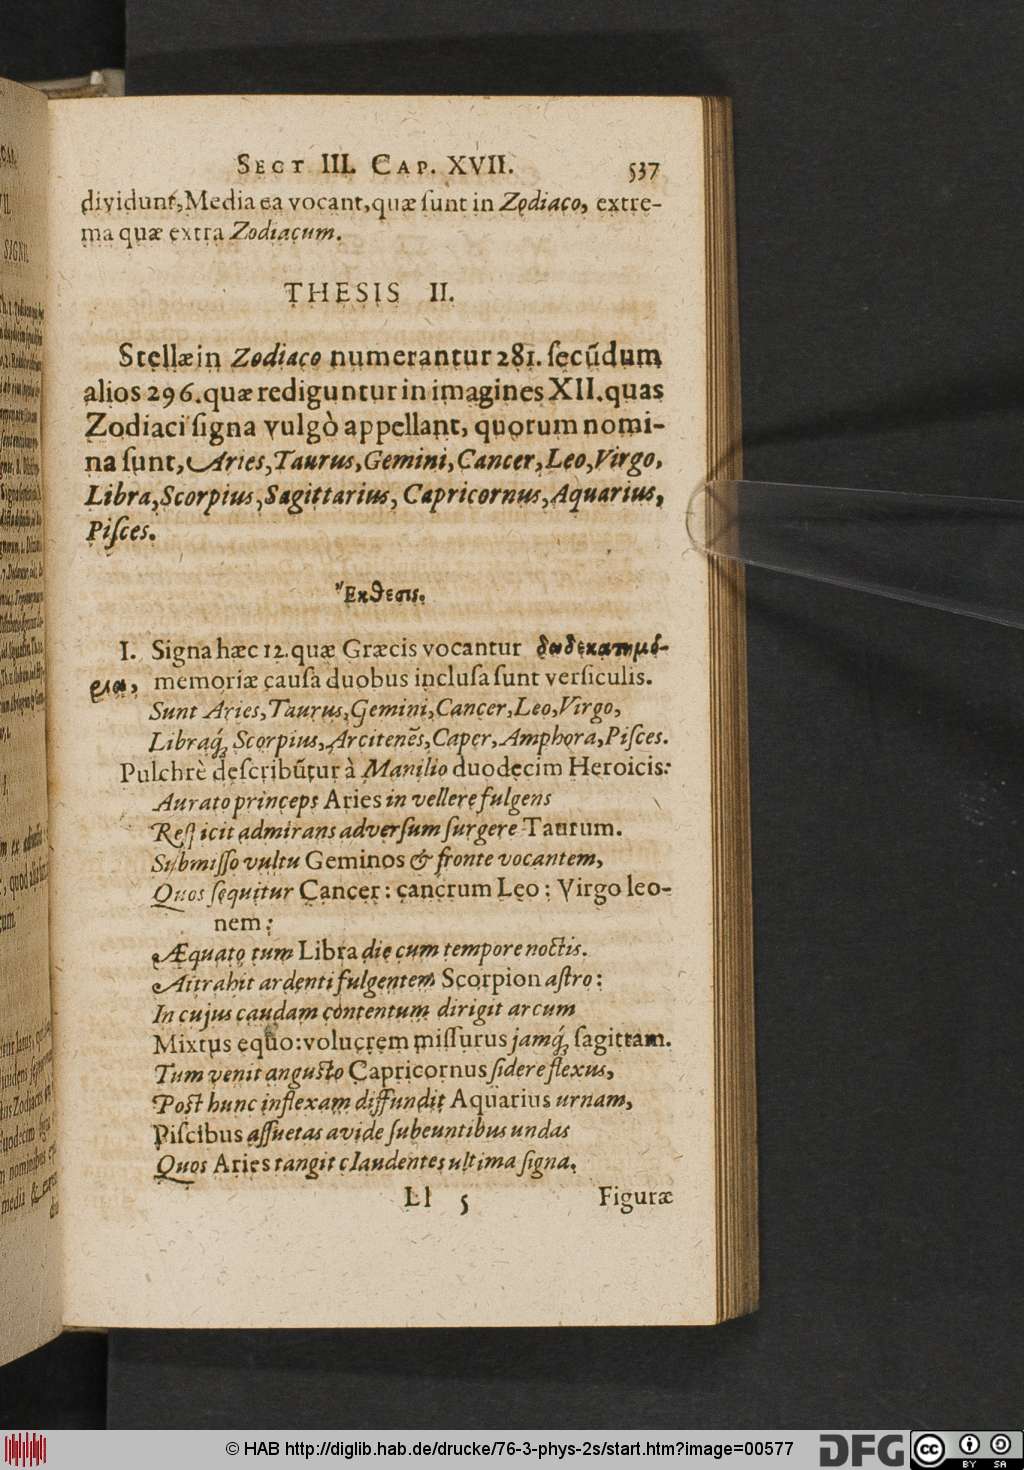 SECT III. CAP. XVII. 537
dividunt, Media ea vocant, quæ ſunt in Zodiaco, extre-
ma quæ extra Zodiacum.
THESIS II.
Stellæ in Zodiaco numerantur 281. ſecũdum
alios 296. quæ rediguntur in imagines XII. quas
Zodiaci ſigna vulgò appellant, quorum nomi-
na ſunt, Aries, Taurus, Gemini, Cancer, Leo, Virgo,
Libra, Scorpius, Sagittarius, Capricornus, Aquarius,
Piſces.
Ἔκθεσις.
I. Signa hæc 12. quæ Græcis vocantur δωδεκατημό-
ρια, memoriæ cauſa duobus incluſa sunt verſiculis.
Sunt Aries, Taurus, Gemini, Cancer, Leo, Virgo,
Libraq́; Scorpius, Arcitenẽs, Caper, Amphora, Piſces.
Pulchrè deſcribũtur à Manilio duodecim Heroicis:
Aurato princeps Aries in vellere fulgens
Reſpicit admirans adverſum ſurgere Taurum.
Submiſſo vultu Geminos & fronte vocantem,
Quos ſequitur Cancer: cancrum Leo: Virgo leo-
nem:
Æquato tum Libra die cum tempore noctis.
Attrahit ardenti fulgentem Scorpion aſtro:
In cujus caudam contentum dirigit arcum
Mixtus equo: volucrem miſſurus jamq́; ſagittam.
Tum venit anguſto Capricornus ſidere flexus,
Poſt hunc inflexam diffundit Aquarius urnam,
Piſcibus aſſuetas avide ſubeuntibus undas
Quos Aries tangit claudentes ultima ſigna.
Ll 5 Figuræ
© HAB http://diglib.hab.de/drucke/76-3-phys-2s/start.htm?image=00577
DFG
cc BY SA